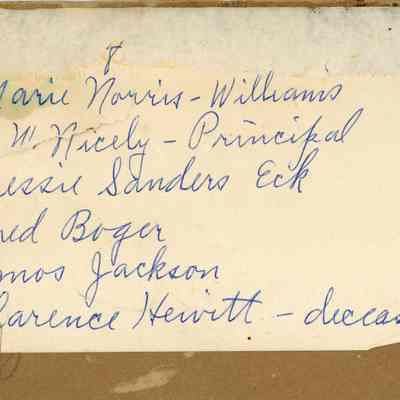 arie Norris - Williams
M Nicely - Principal
essie Sanders Eck
red Boger
mos Jackson
larence Hewitt - deceas